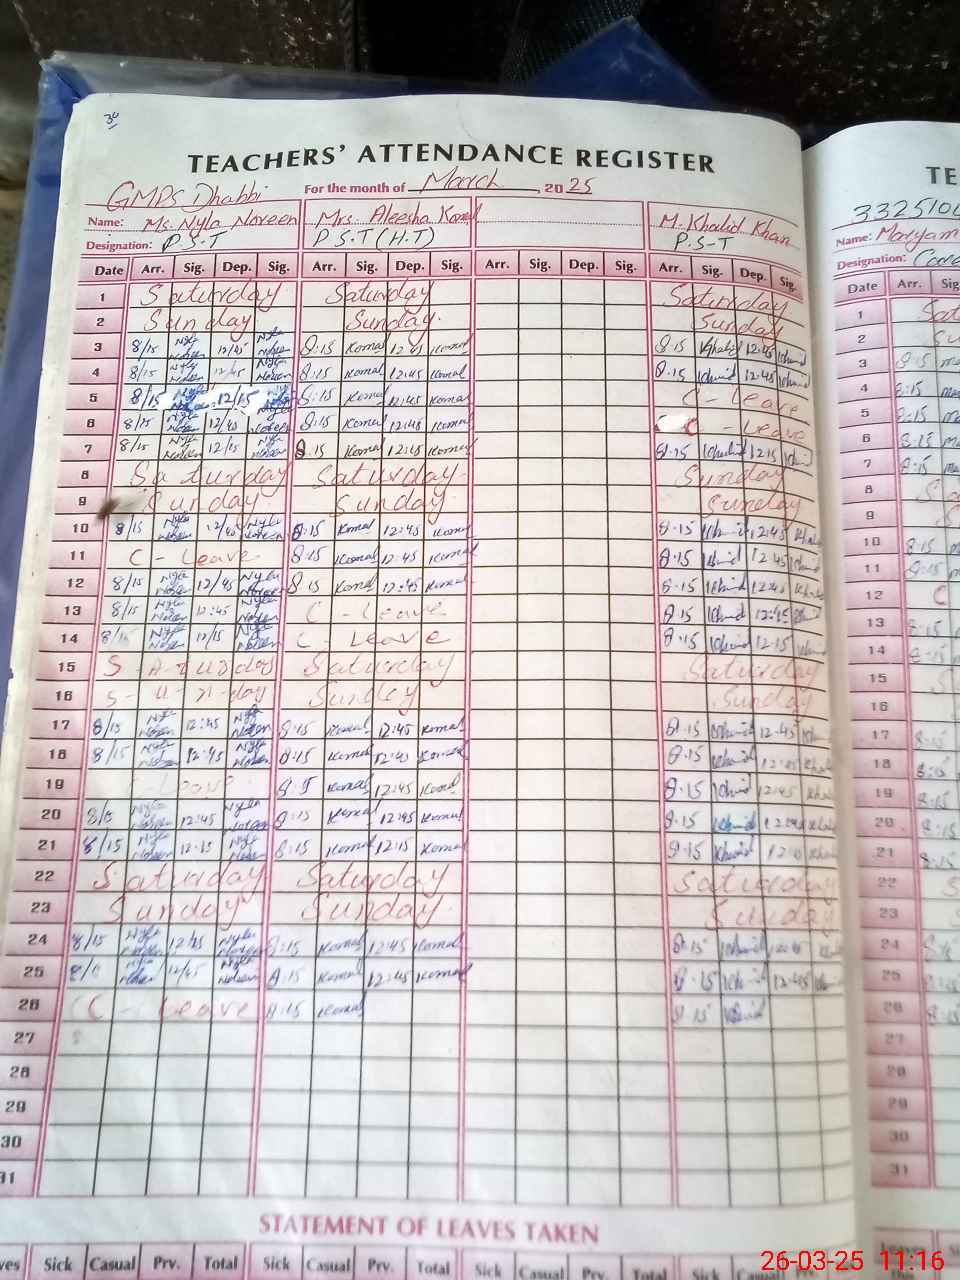 30
TEACHERS' ATTENDANCE REGISTER
GMPS Dhabbi For the month of March, 2025
Name: Ms. Nyla Noreen Mrs. Aleesha Komal M. Khalid Khan
Designation: P.S.T P S.T (H.T) P.S-T
Date Arr. Sig. Dep. Sig. Arr. Sig. Dep. Sig. Arr. Sig. Dep. Sig. Arr. Sig. Dep. Sig.
1 Saturday Saturday Saturday
2 Sunday Sunday. Sunday
3 8/15 Nyla Noreen 12/45 Nyla Noreen 8:15 Komal 12:45 Komal 8.15 Khalid 12:45
4 8/15 Nyla Noreen 12/45 Nyla Noreen 8:15 Komal 12:45 Komal 8.15 12:45
5 8/15 12/15 8:15 Komal 12:45 Komal C - Leave
6 8/15 Nyla Noreen 12/45 Nyla Noreen 8:15 Komal 12:45 Komal C - Leave
7 8/15 Nyla Noreen 12/15 Nyla Noreen 8.15 Komal 12:45 Komal 8.15 12:15
8 Saturday Saturday Sunday
9 Sunday Sunday Sunday
10 8/15 Nyla Noreen 12/45 Nyla Noreen 8:15 Komal 12:45 Komal 8.15 12:45
11 C - Leave 8:15 Komal 12:45 Komal 8.15 12:45
12 8/15 Nyla Noreen 12/45 Nyla Noreen 8:15 Komal 12:45 Komal 8.15 12:45
13 8/15 Nyla Noreen 12:45 Nyla Noreen C - Leave 8.15 12:45
14 8/15 Nyla Noreen 12/15 Nyla Noreen C - Leave 8.15 12:15
15 S-A-turday Saturday Saturday
16 S-u-n-day Sunday Sunday
17 8/15 Nyla Noreen 12:45 Nyla Noreen 8:15 Komal 12:45 Komal 8.15 12:45
18 8/15 Nyla Noreen 12:45 Nyla Noreen 8:15 Komal 12:45 Komal 8.15 12:45
19 Leave Komal 12:45 Komal 8.15 12:45
20 Nyla Noreen 12:45 Nyla Noreen 8:15 Komal 12:45 Komal 8.15 12:45
21 8/15 Nyla Noreen 12:15 Nyla Noreen 8:15 Komal 12:15 Komal 8.15 12:15
22 Saturday Saturday Saturday
23 Sunday Sunday Sunday
24 8/15 Nyla Noreen 12/45 Nyla Noreen 8:15 Komal 12:45 Komal 8.15 12:45
25 Nyla Noreen 12/45 Nyla Noreen 8:15 Komal 12:45 Komal 8.15 12:45
26 C - Leave 8:15 Komal 8.15
27
28
29
30
31
STATEMENT OF LEAVES TAKEN
Sick Casual Prv. Total Sick Casual Prv. Total Sick Casual Prv. Total Sick Casual Prv.
TE
Name: Maryam
Designation:
Date Arr.
1
2
3 8:15
4 8:15
5 8:15
6 8:15
7 8:15
8
9
10 8:15
11 8:15
12 C
13 8:15
14 8:15
15
16
17 8:15
18 8:15
19 8:15
20 8:15
21 8:15
22
23
24 8:15
25 8:15
26 8:15
27
28
29
30
31
Leaves
26-03-25 11:16